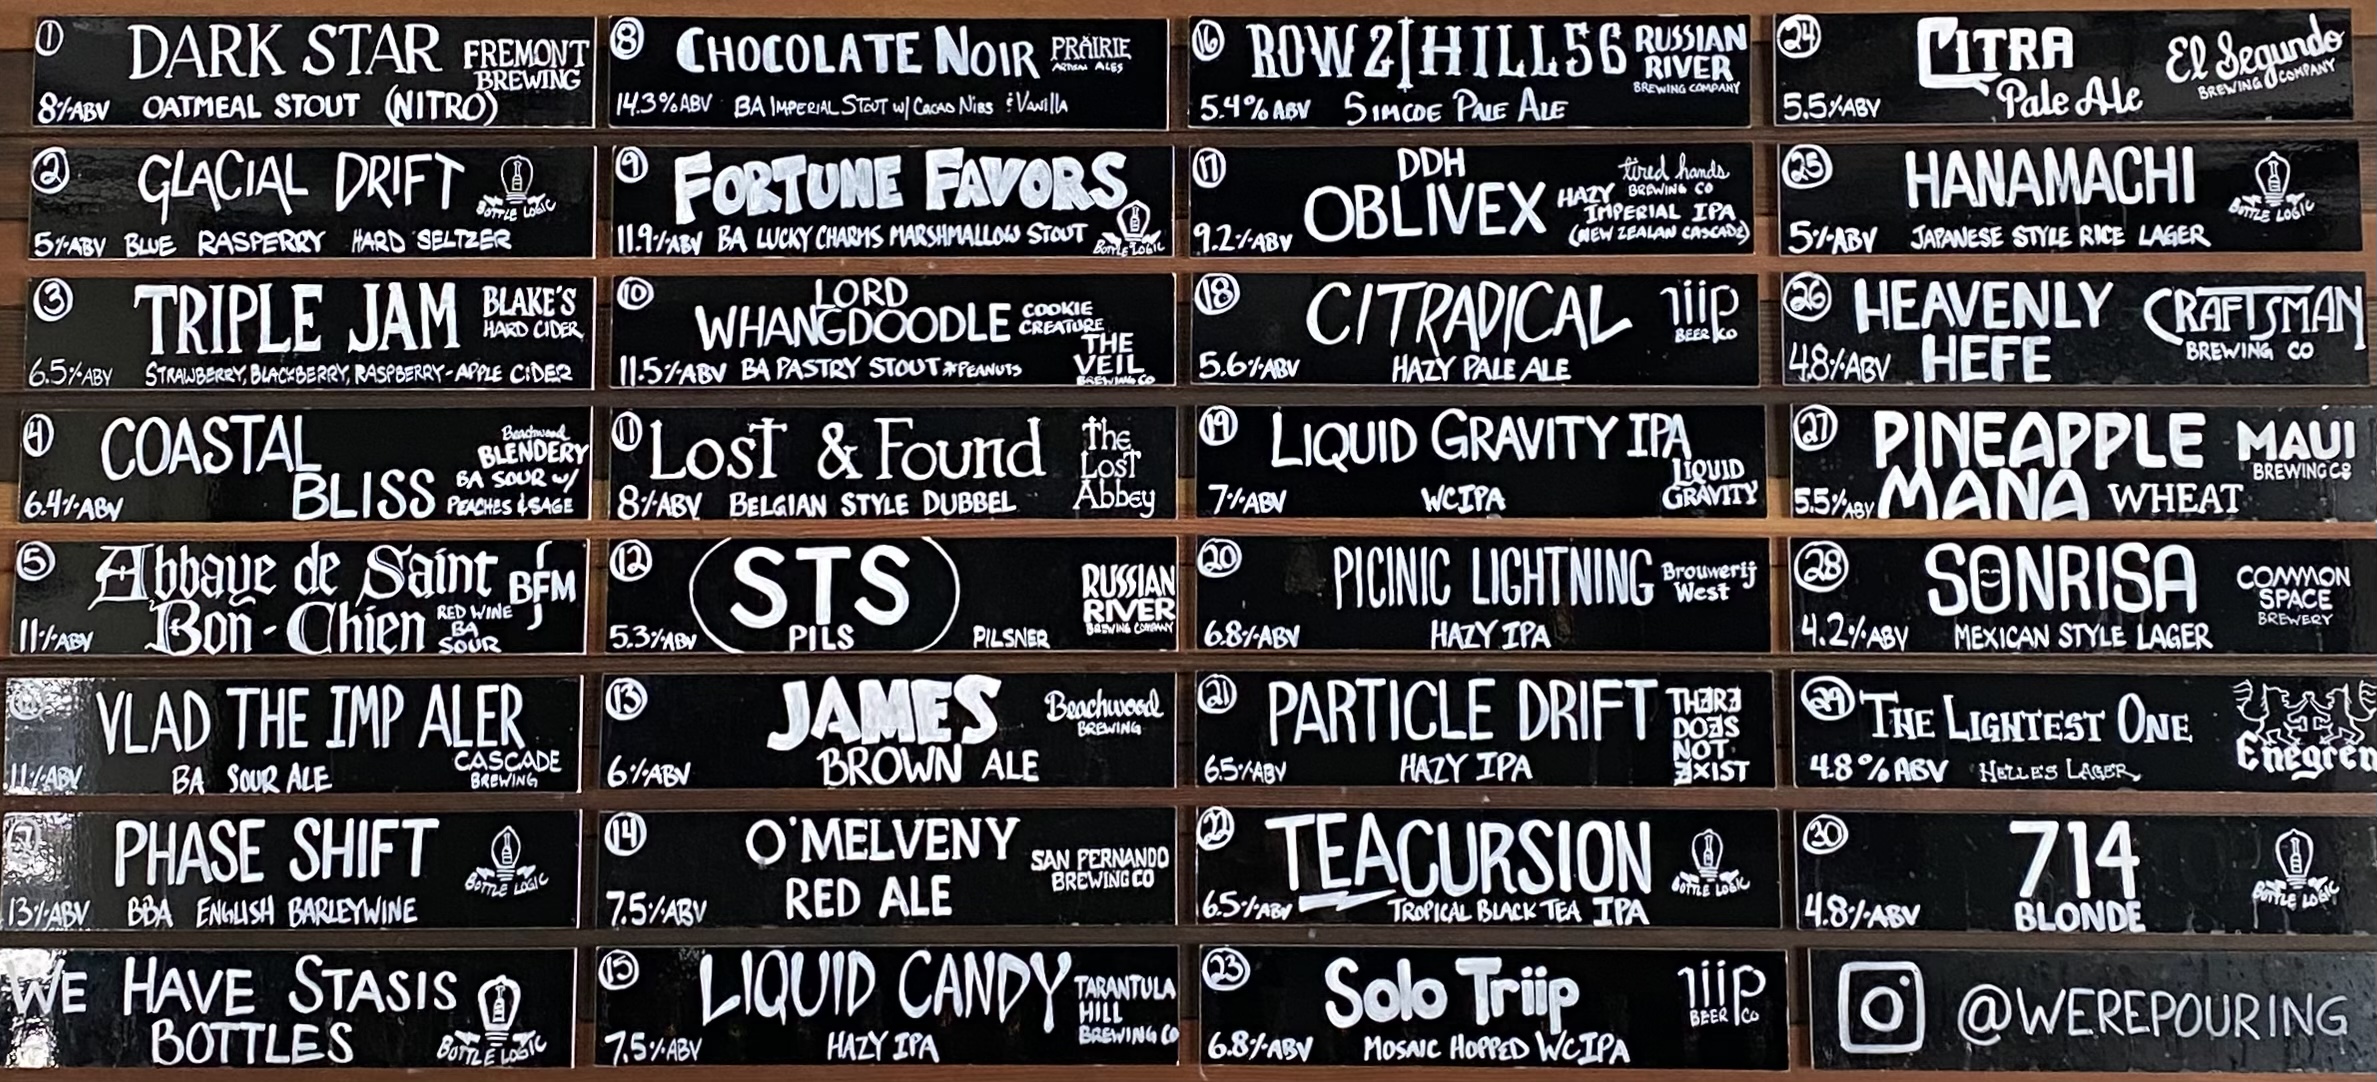 1 DARK STAR FREMONT BREWING
8% ABV OATMEAL STOUT (NITRO)
2 GLACIAL DRIFT BOTTLE LOGIC
5% ABV BLUE RASPERRY HARD SELTZER
3 TRIPLE JAM BLAKE'S HARD CIDER
6.5% ABV STRAWBERRY, BLACKBERRY, RASPBERRY-APPLE CIDER
4 COASTAL BLISS Beachwood BLENDERY
6.4% ABV BA SOUR W/ PEACHES & SAGE
5 Abbaye de Saint Bon-Chien BFM
11% ABV RED WINE BA SOUR
VLAD THE IMP ALER CASCADE BREWING
11% ABV BA SOUR ALE
7 PHASE SHIFT BOTTLE LOGIC
13% ABV BBA ENGLISH BARLEYWINE
WE HAVE STASIS
BOTTLES BOTTLE LOGIC
8 CHOCOLATE NOIR PRAIRIE ARTISAN ALES
14.3% ABV BA IMPERIAL STOUT W/ CACAO NIBS & VANILLA
9 FORTUNE FAVORS BOTTLE LOGIC
11.9% ABV BA LUCKY CHARMS MARSHMALLOW STOUT
10 LORD WHANGDOODLE COOKIE CREATURE THE VEIL BREWING CO
11.5% ABV BA PASTRY STOUT *PEANUTS
11 Lost & Found The Lost Abbey
8% ABV BELGIAN STYLE DUBBEL
12 STS PILS RUSSIAN RIVER BREWING COMPANY
5.3% ABV PILSNER
13 JAMES Beachwood BREWING
6% ABV BROWN ALE
14 O'MELVENY SAN FERNANDO BREWING CO
7.5% ABV RED ALE
15 LIQUID CANDY TARANTULA HILL BREWING CO
7.5% ABV HAZY IPA
16 ROW 2|HILL 56 RUSSIAN RIVER BREWING COMPANY
5.4% ABV SIMCOE PALE ALE
17 DDH OBLIVEX tired hands BREWING CO
9.2% ABV HAZY IMPERIAL IPA (NEW ZEALAN CASCADE)
18 CITRADICAL riip BEER CO
5.6% ABV HAZY PALE ALE
19 LIQUID GRAVITY IPA LIQUID GRAVITY
7% ABV WCIPA
20 PICINIC LIGHTNING Brouwerij West
6.8% ABV HAZY IPA
21 PARTICLE DRIFT THERE DOES NOT EXIST
6.5% ABV HAZY IPA
22 TEACURSION BOTTLE LOGIC
6.5% ABV TROPICAL BLACK TEA IPA
23 Solo Triip riip BEER CO
6.8% ABV MOSAIC HOPPED WCIPA
24 CITRA Pale Ale El Segundo BREWING COMPANY
5.5% ABV
25 HANAMACHI BOTTLE LOGIC
5% ABV JAPANESE STYLE RICE LAGER
26 HEAVENLY HEFE CRAFTSMAN BREWING CO
4.8% ABV
27 PINEAPPLE MANA WHEAT MAUI BREWING CO
5.5% ABV
28 SONRISA COMMON SPACE BREWERY
4.2% ABV MEXICAN STYLE LAGER
29 THE LIGHTEST ONE Enegren
4.8% ABV HELLES LAGER
30 714 BOTTLE LOGIC
4.8% ABV BLONDE
@WEREPOURING